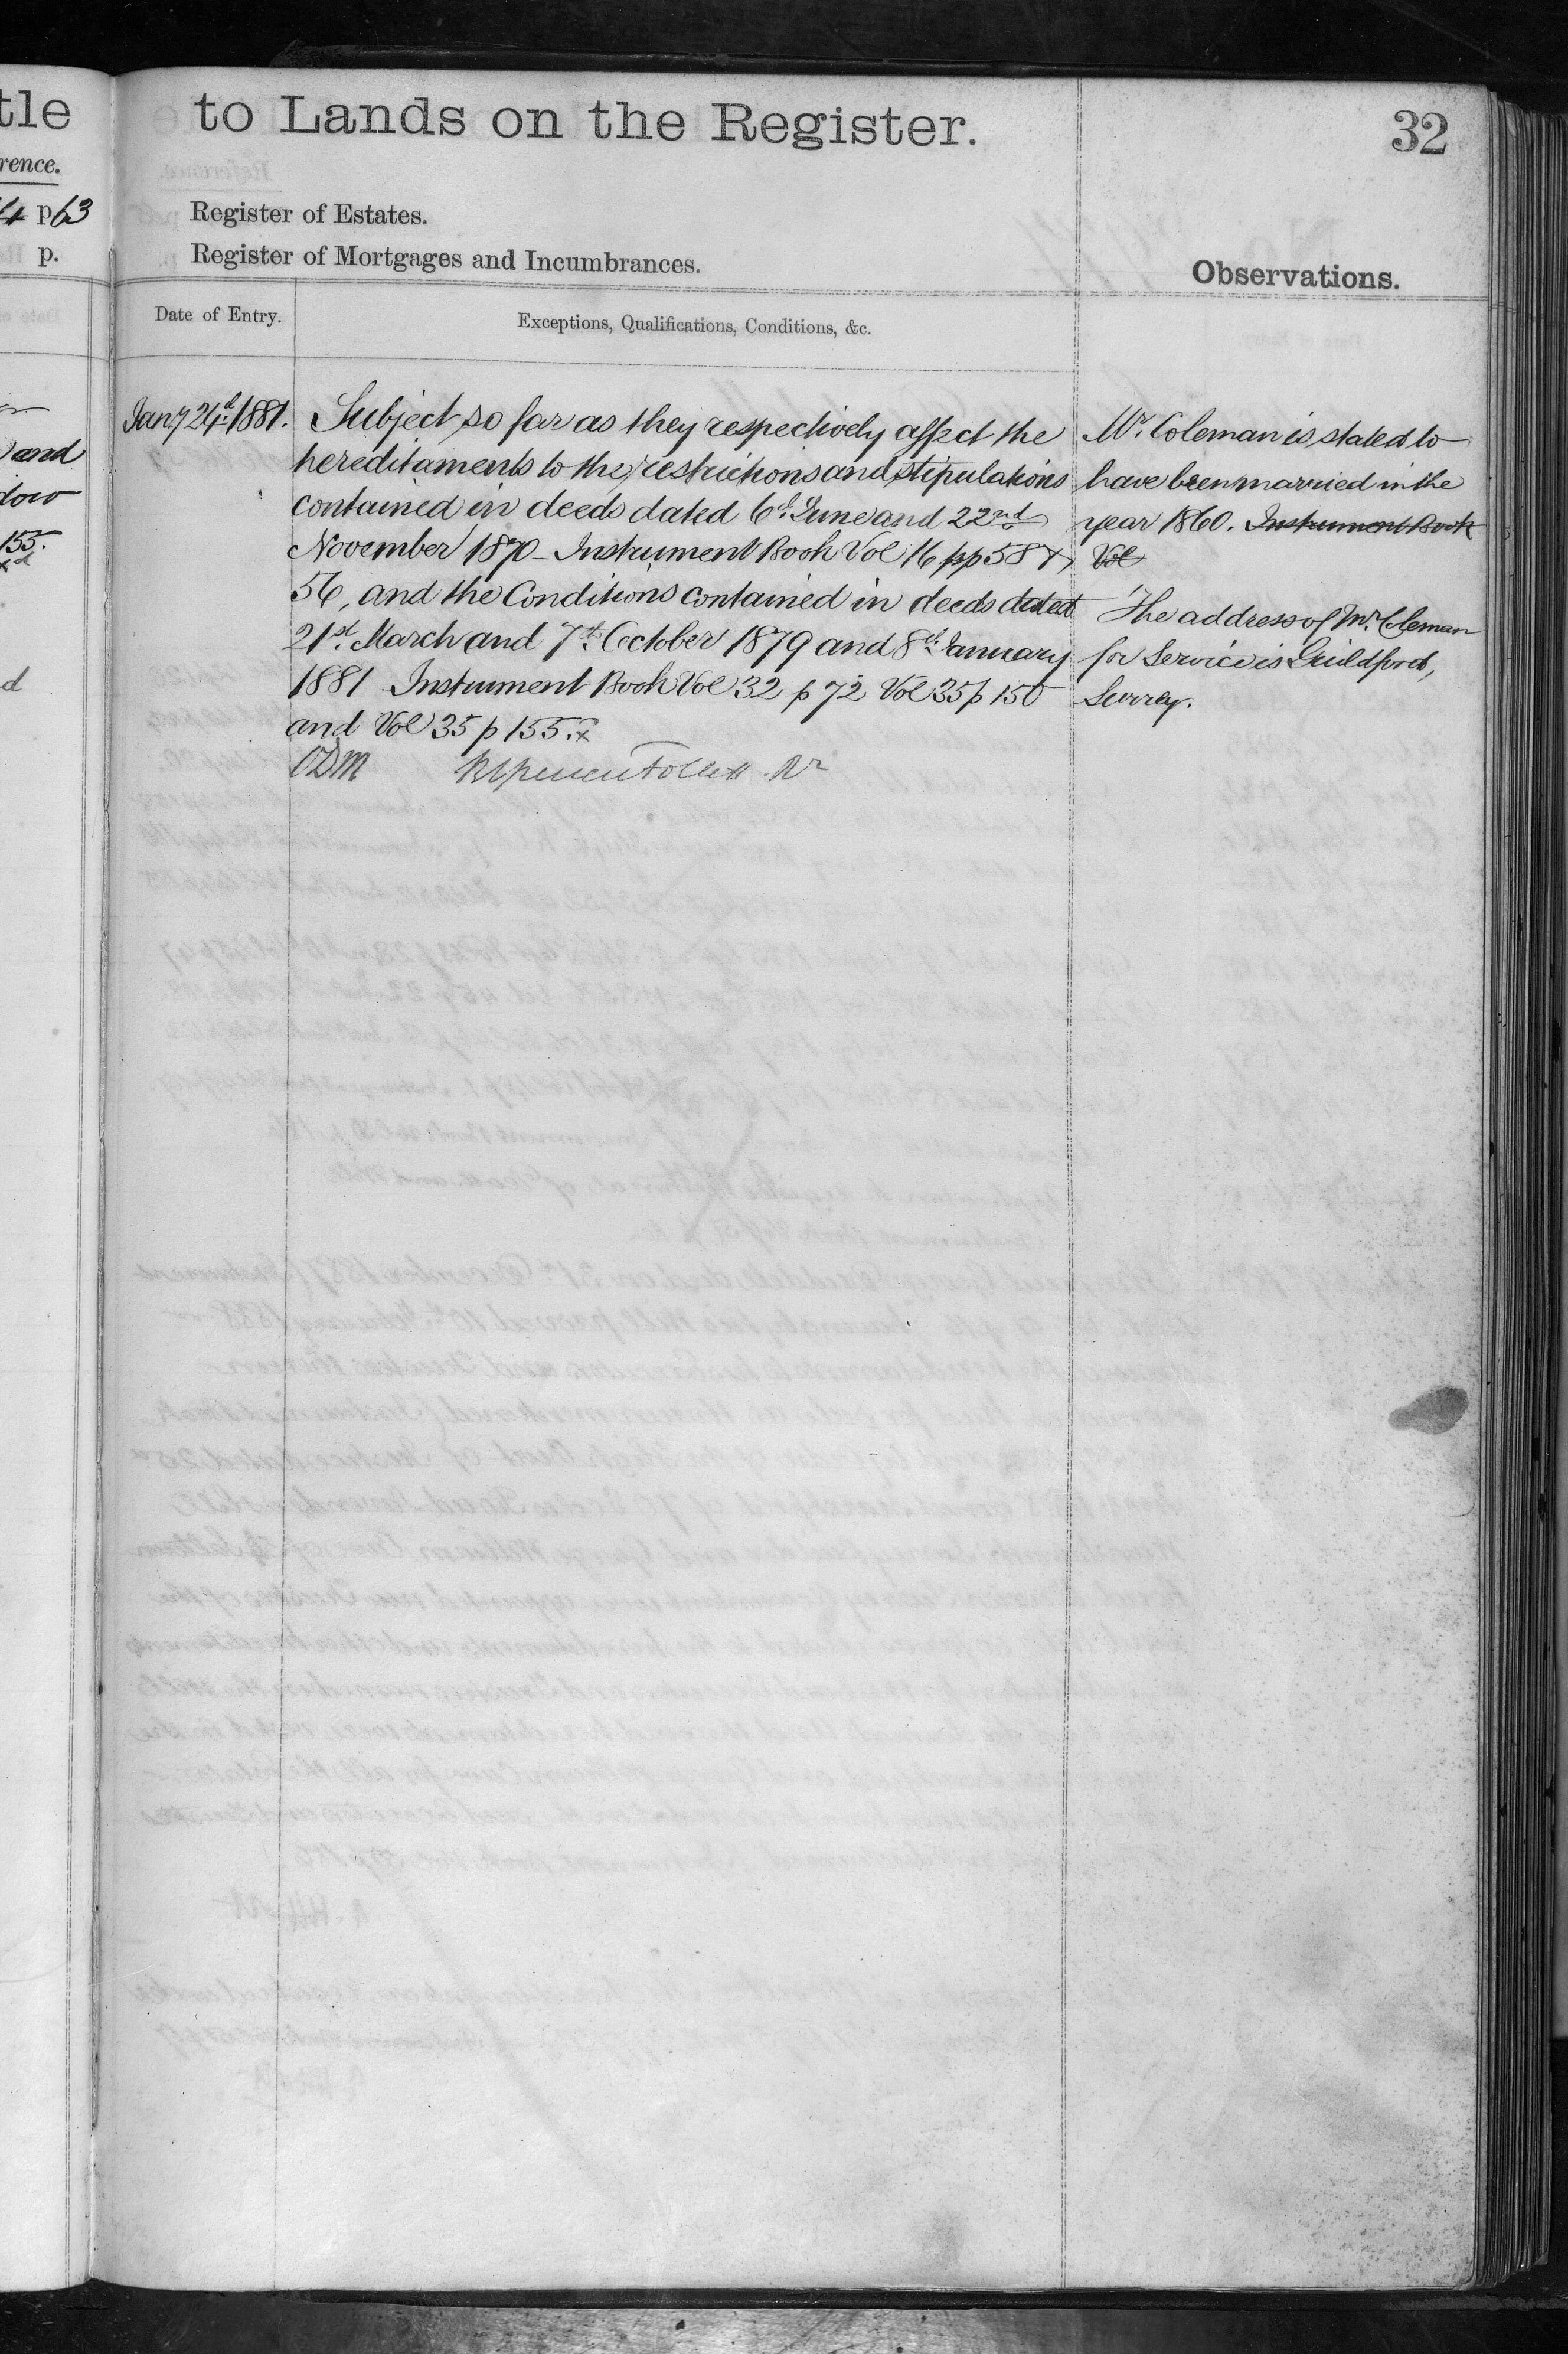 tle
rence.
p63
p.
and
dow
155.
d
to Lands on the Register.
32
Register of Estates.
Register of Mortgages and Incumbrances.
Observations.
Date of Entry.
Exceptions, Qualifications, Conditions, &c.
Jany 24th 1881.
Subject so far as they respectively affect the
hereditaments to the restrictions and stipulations
contained in deeds dated 6th June and 22nd
November 1870 - Instrument Book Vol 16 pp 58 &
56, and the Conditions contained in deeds dated
21st March and 7th October 1879 and 8th January
1881 Instrument Book Vol 32 p 72 Vol 35 p 150
and Vol 35 p 155. x
Mr Coleman is stated to
have been married in the
year 1860. Instrument Book
Vol
The address of Mr Coleman
for Service is Guildford,
Surrey.